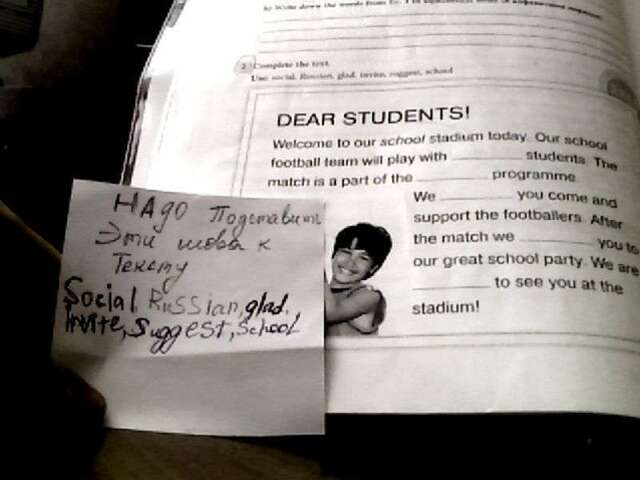 2 Complete the text.
Use social, Russian, glad, invite, suggest, school
DEAR STUDENTS!
Welcome to our school stadium today. Our school
football team will play with ________ students. The
match is a part of the ________ programme.
We ________ you come and
support the footballers. After
the match we ________ you to
our great school party. We are
________ to see you at the
stadium!
НАдо Подставить
Эти слова к
Тексту
Social, RuSSian, glad,
Invite, Suggest, School